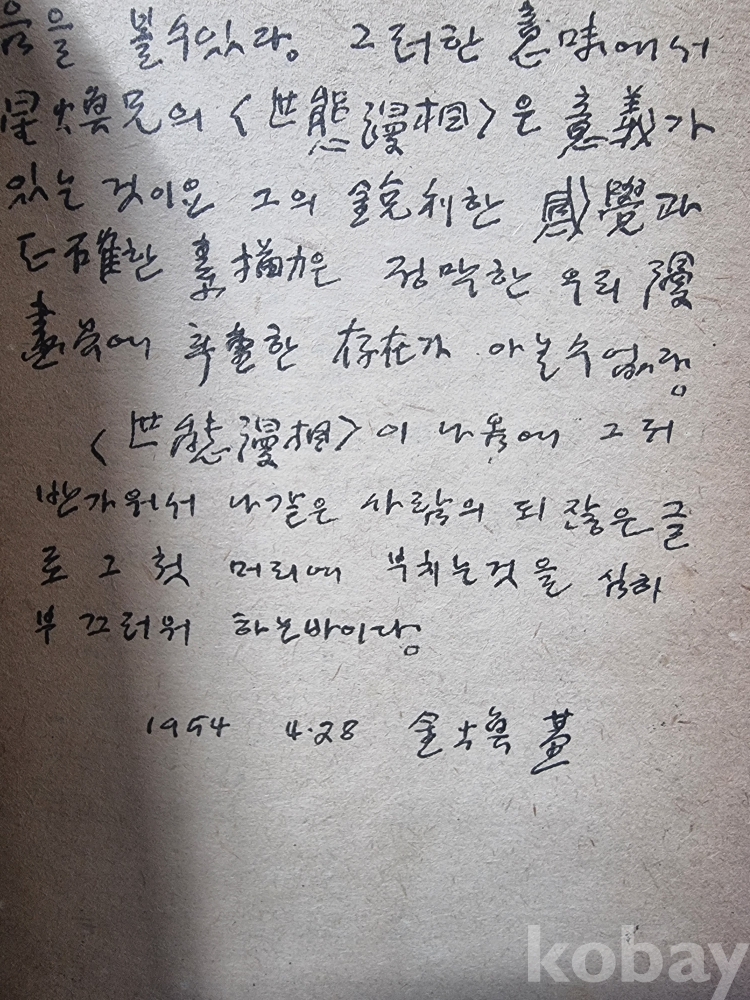 음을 볼수있다. 그러한 意味에서
星煥兄의 <世態漫相>은 意義가
있는 것이요 그의 銳利한 感覺과
正確한 素描力은 적막한 우리 漫
畫界에 확호한 存在가 아닐수없다.
<世態漫相>이 나옴에 그저
반가워서 나같은 사람의 되잖은글
로 그 첫 머리에 부치는것을 심히
부끄러워 하는바이다.
1954 4.28 金
kobay